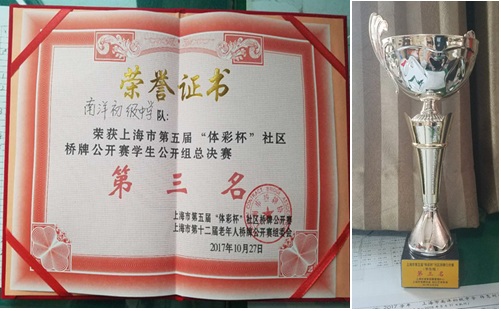 荣誉证书
南洋初级中学队：
荣获上海市第五届“体彩杯”社区
桥牌公开赛学生公开组总决赛
第三名
上海市第五届“体彩杯”社区桥牌公开赛
上海市第十二届老年人桥牌公开赛组委会
2017年10月27日
第三名